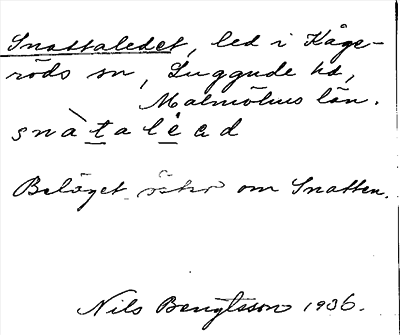 Snattaledet, led i Kåge-
röds sn, Luggude hd,
Malmöhus län.
snàtalead
Beläget öster om Snatten.
Nils Bengtsson 1936.